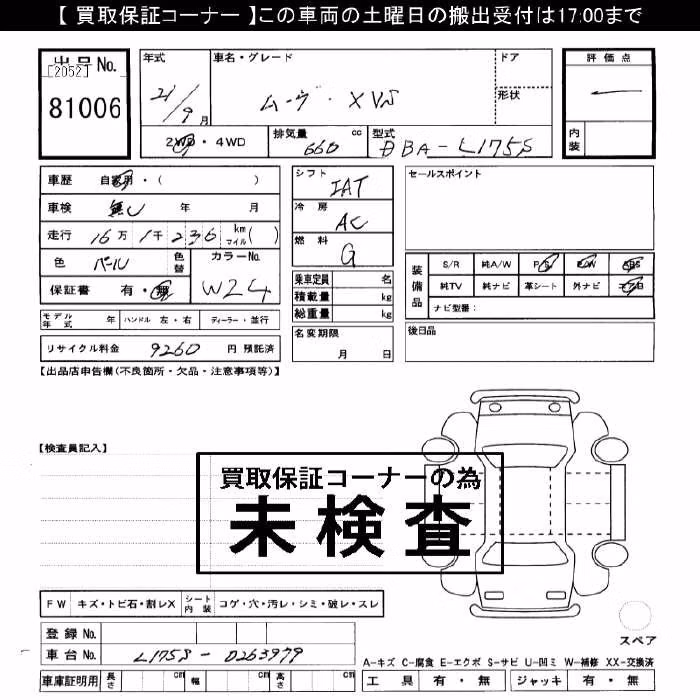 【 買取保証コーナー 】この車両の土曜日の搬出受付は17:00まで
出品No.
[2052]
81006
年式
21/9月
車名・グレード
ムーヴ・XVS
ドア
形状
評価点
内装
2WD・4WD
排気量 cc
660
型式
DBA-L175S
車歴 自家用・( )
車検 無し 年 月
走行 16万1千236 km マイル( )
色 パール 色替
カラーNo.
W24
保証書 有・無
シフト
IAT
冷房
AC
燃料
G
乗車定員 名
積載量 kg
総重量 kg
名変期限
月 日
セールスポイント
装備品
S/R 純A/W P/S P/W ABS
純TV 純ナビ 革シート 外ナビ エアB
ナビ型番:
後日品
モデル年式 年 ハンドル 左・右 ディーラー・並行
リサイクル料金 9260 円 預託済
【出品店申告欄(不良箇所・欠品・注意事項等)】
【検査員記入】
買取保証コーナーの為
未検査
FW キズ・トビ石・割レX シート内装 コゲ・穴・汚レ・シミ・破レ・スレ
登録No.
車台No. L175S-0263979
車庫証明用 長さ cm 幅 cm 高さ cm
スペア
A-キズ C-腐食 E-エクボ S-サビ U-凹ミ W-補修 XX-交換済
工具 有・無 ジャッキ 有・無